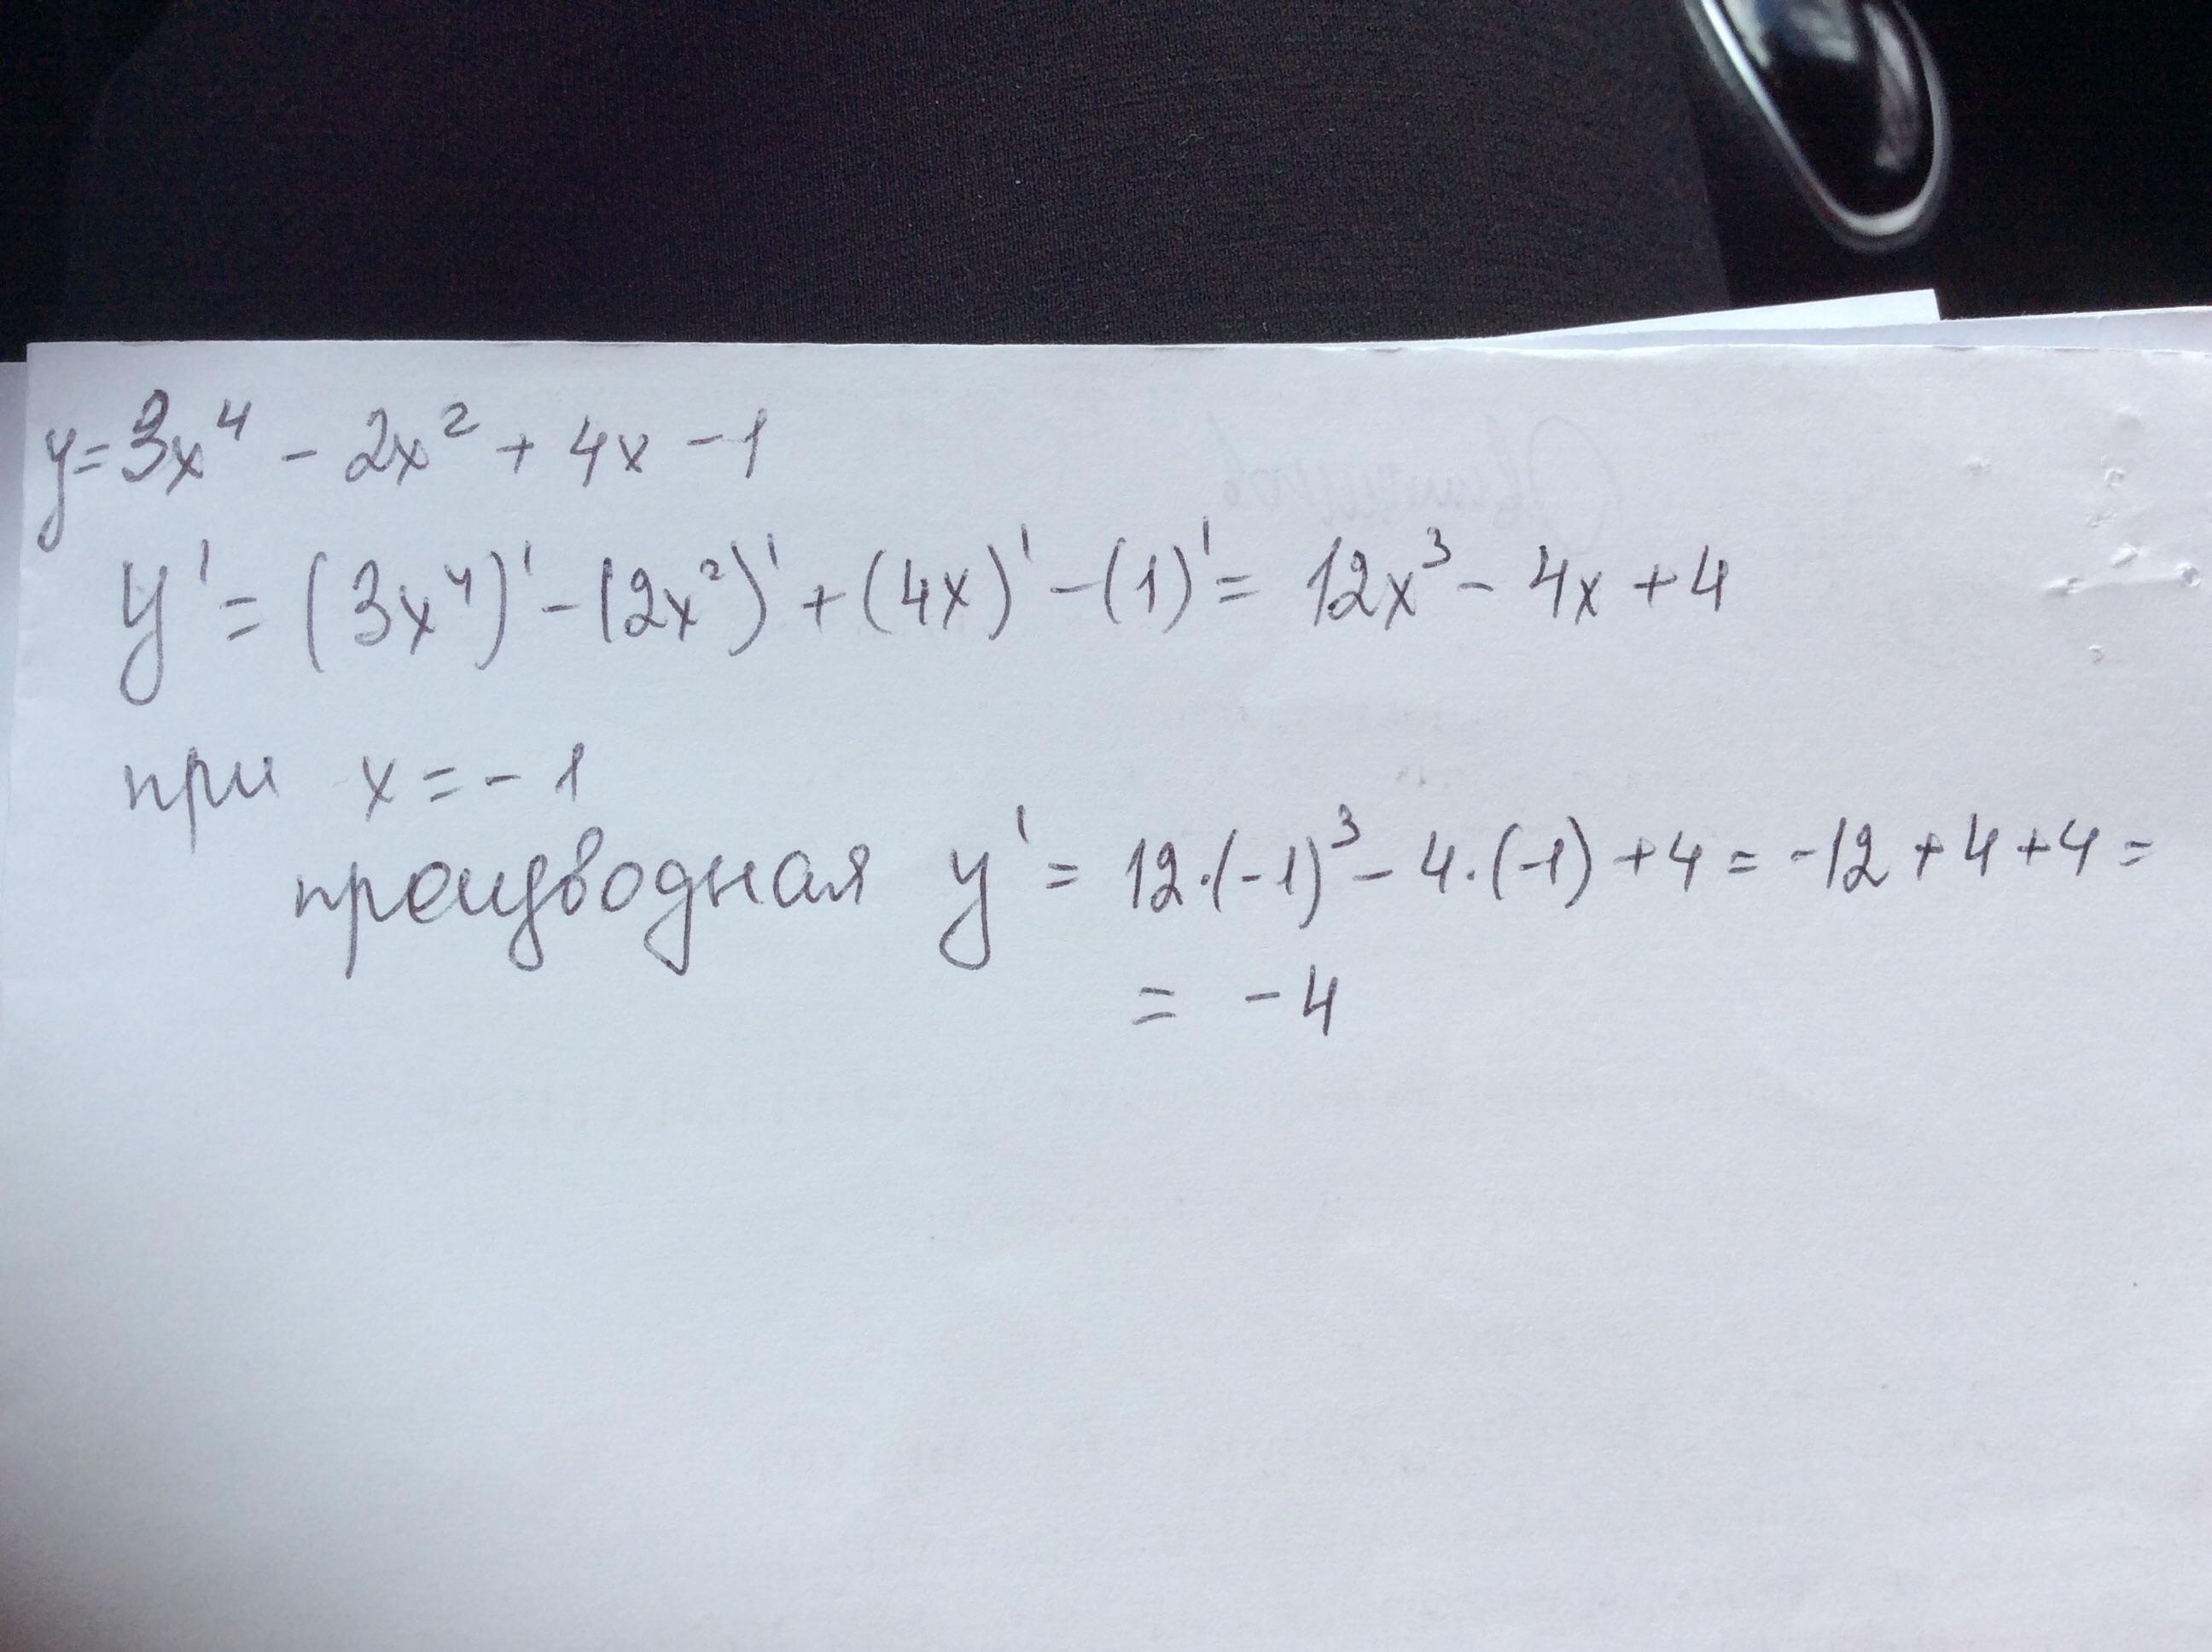 y=3x⁴ - 2x² + 4x - 1
y' = (3x⁴)' - (2x²)' + (4x)' - (1)' = 12x³ - 4x + 4
при x = - 1
производная y' = 12·(-1)³ - 4·(-1) + 4 = -12 + 4 + 4 =
= - 4